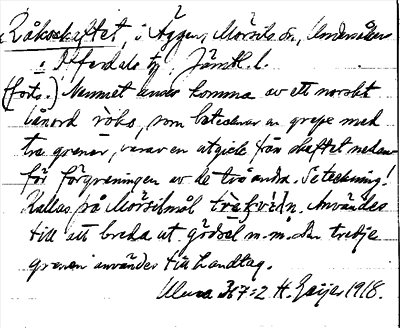 Råkoskaftet, i Äggen, Mörsils sn, Undersåkers
i Offerdals tg Jämtl. l.
(forts.) Namnet anses komma av ett norskt
lånord råks, som betecknar en grepe med
tre grenar, varav en utgick från skaftet nedan-
för förgreningen av de två andra. Se teckning!
Kallas på Mörsilmål Användes
till att breda ut gödsel m.m. Den tredje
grenen användes till handtag.
Uluna 367:2 H. Geijer 1918.